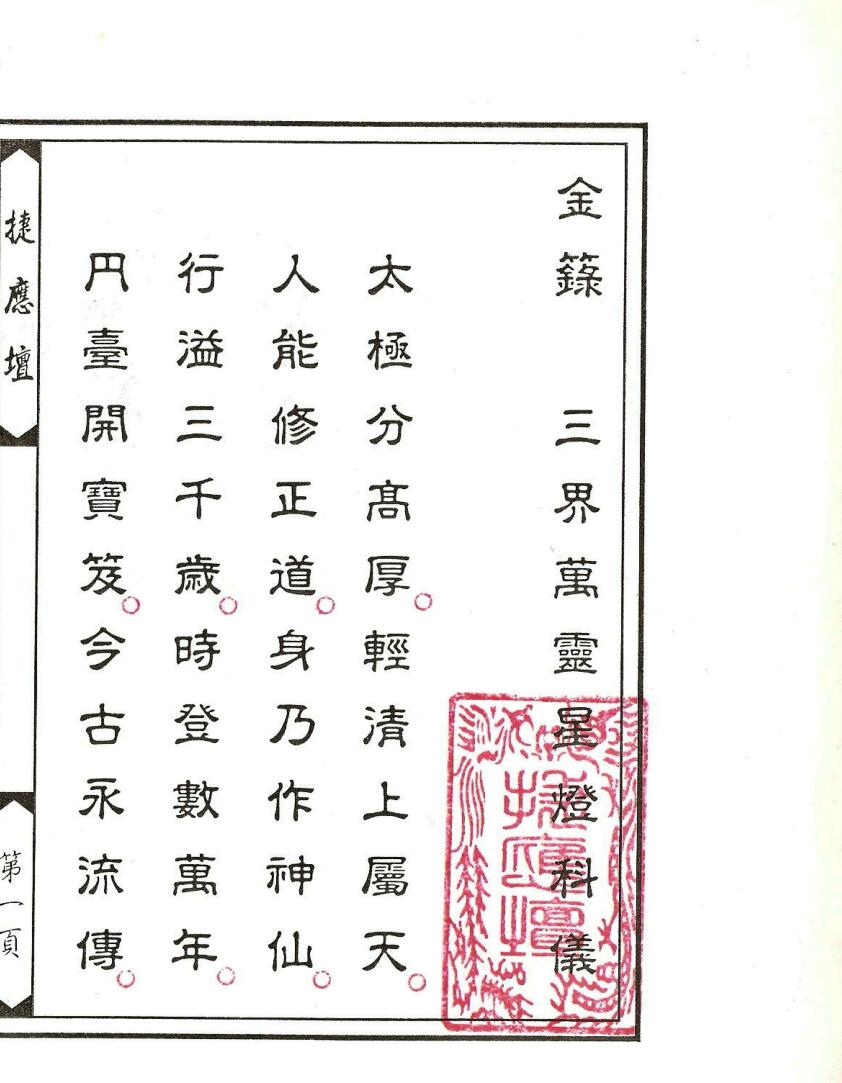 金籙 三界萬靈星燈科儀
太極分髙厚輕清上屬天
人能修正道身乃作神仙
行溢三千歲時登數萬年
円臺開寶笈今古永流傳
捷應壇
第一頁
捷應壇